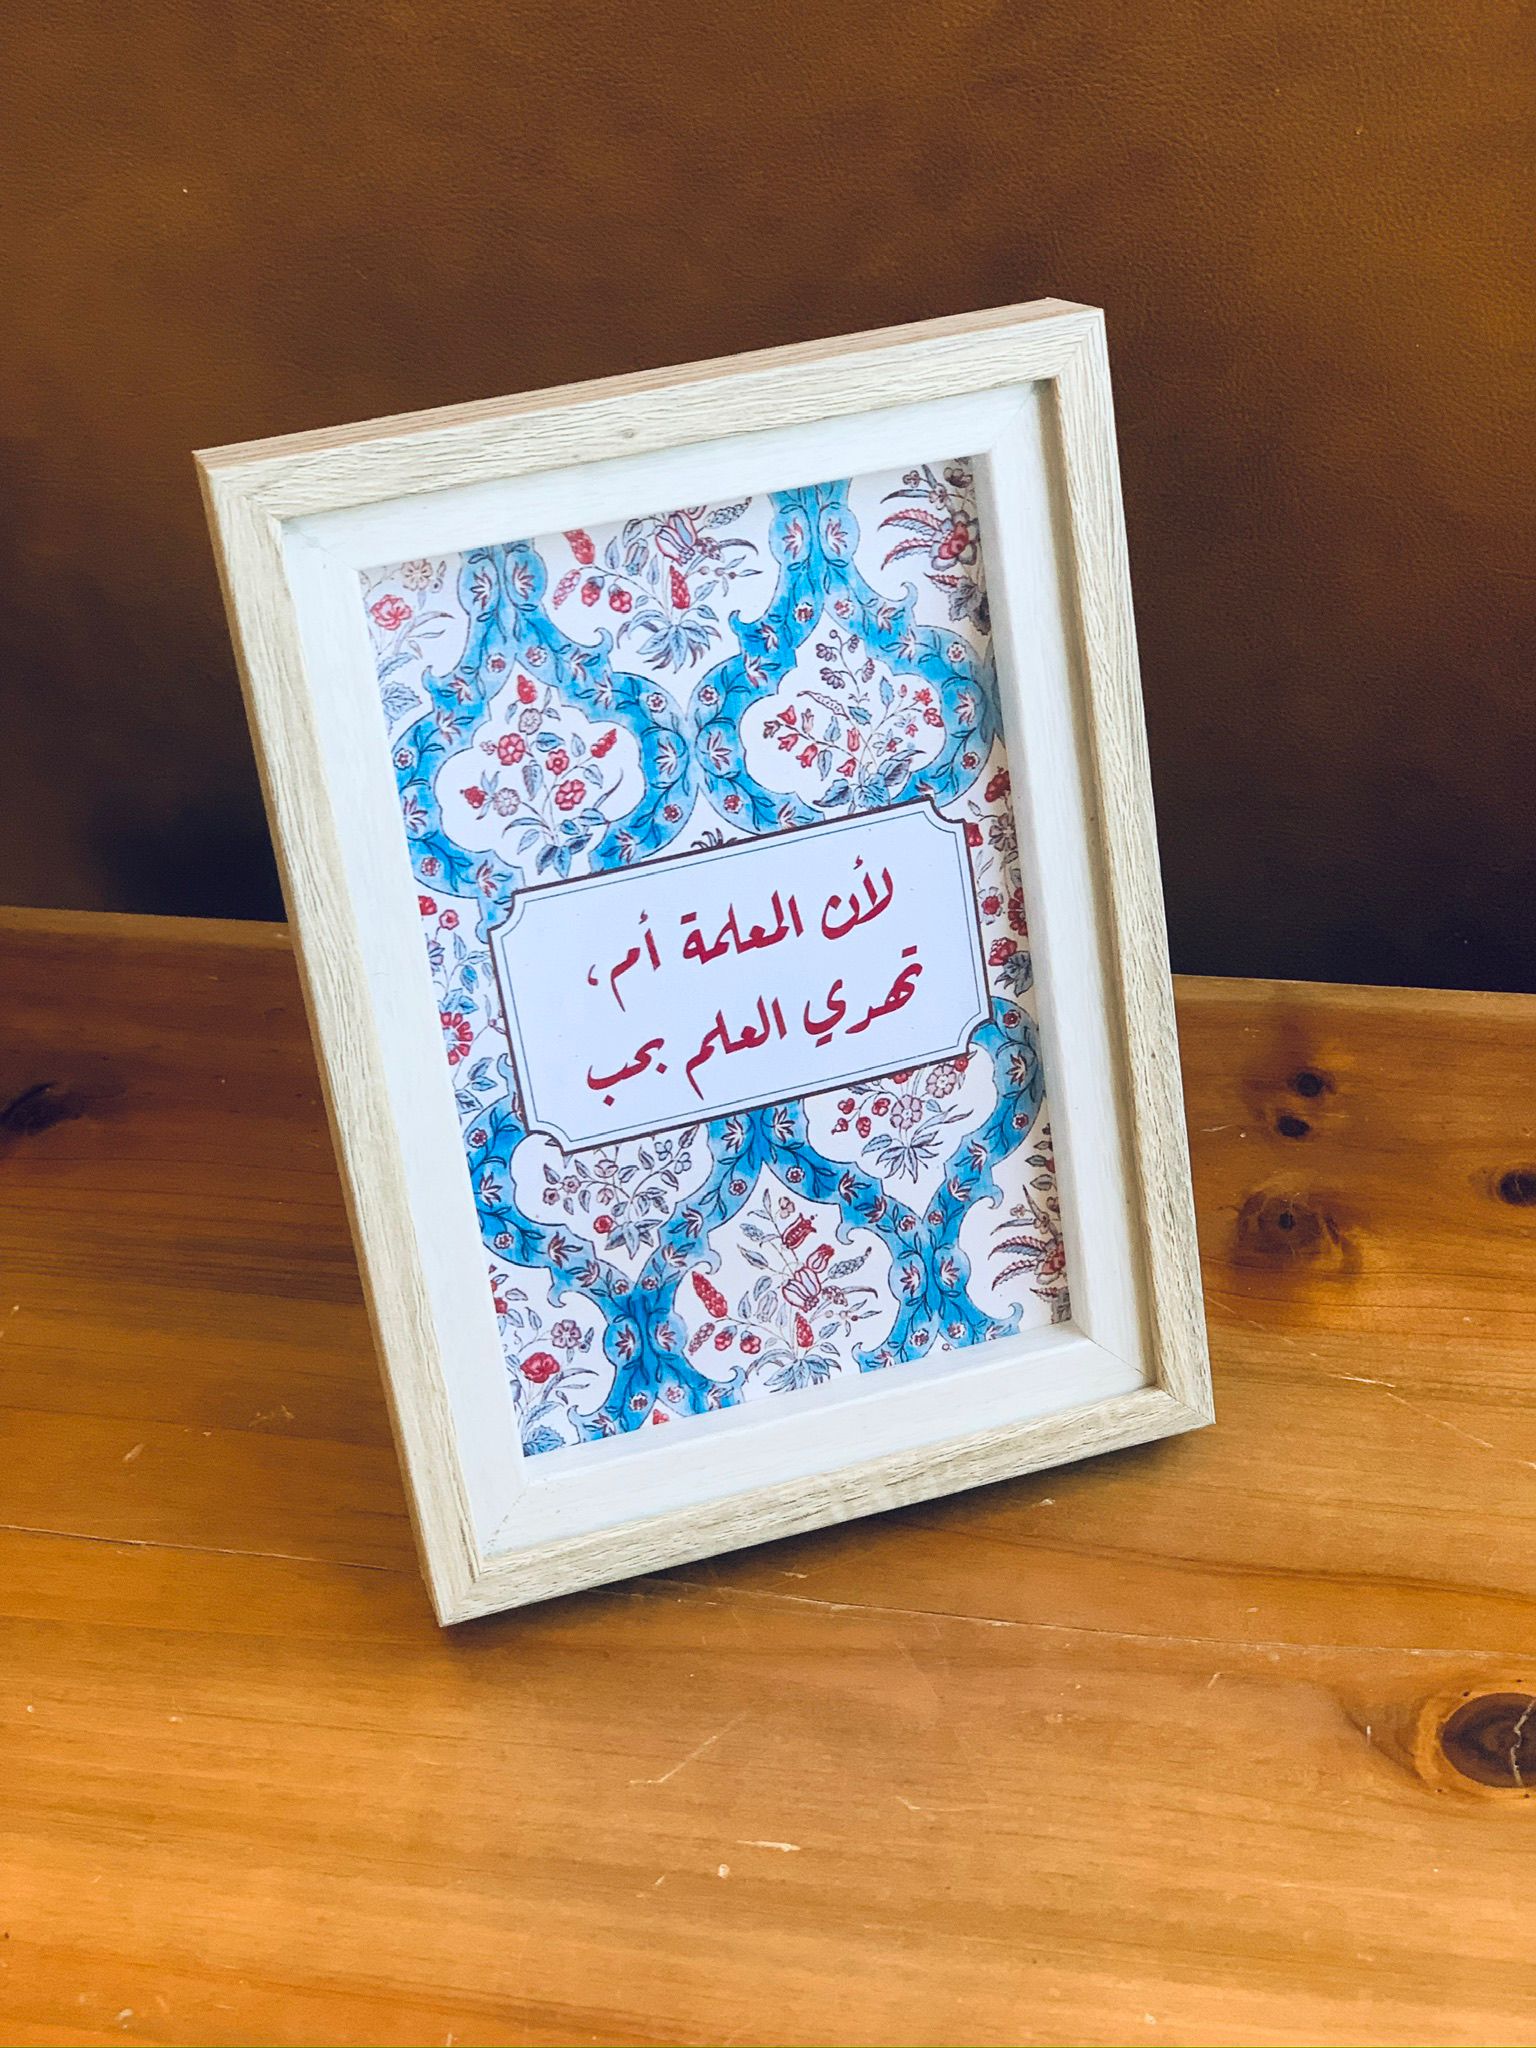 لأن المعلمة أم،
تهدي العلم بحب